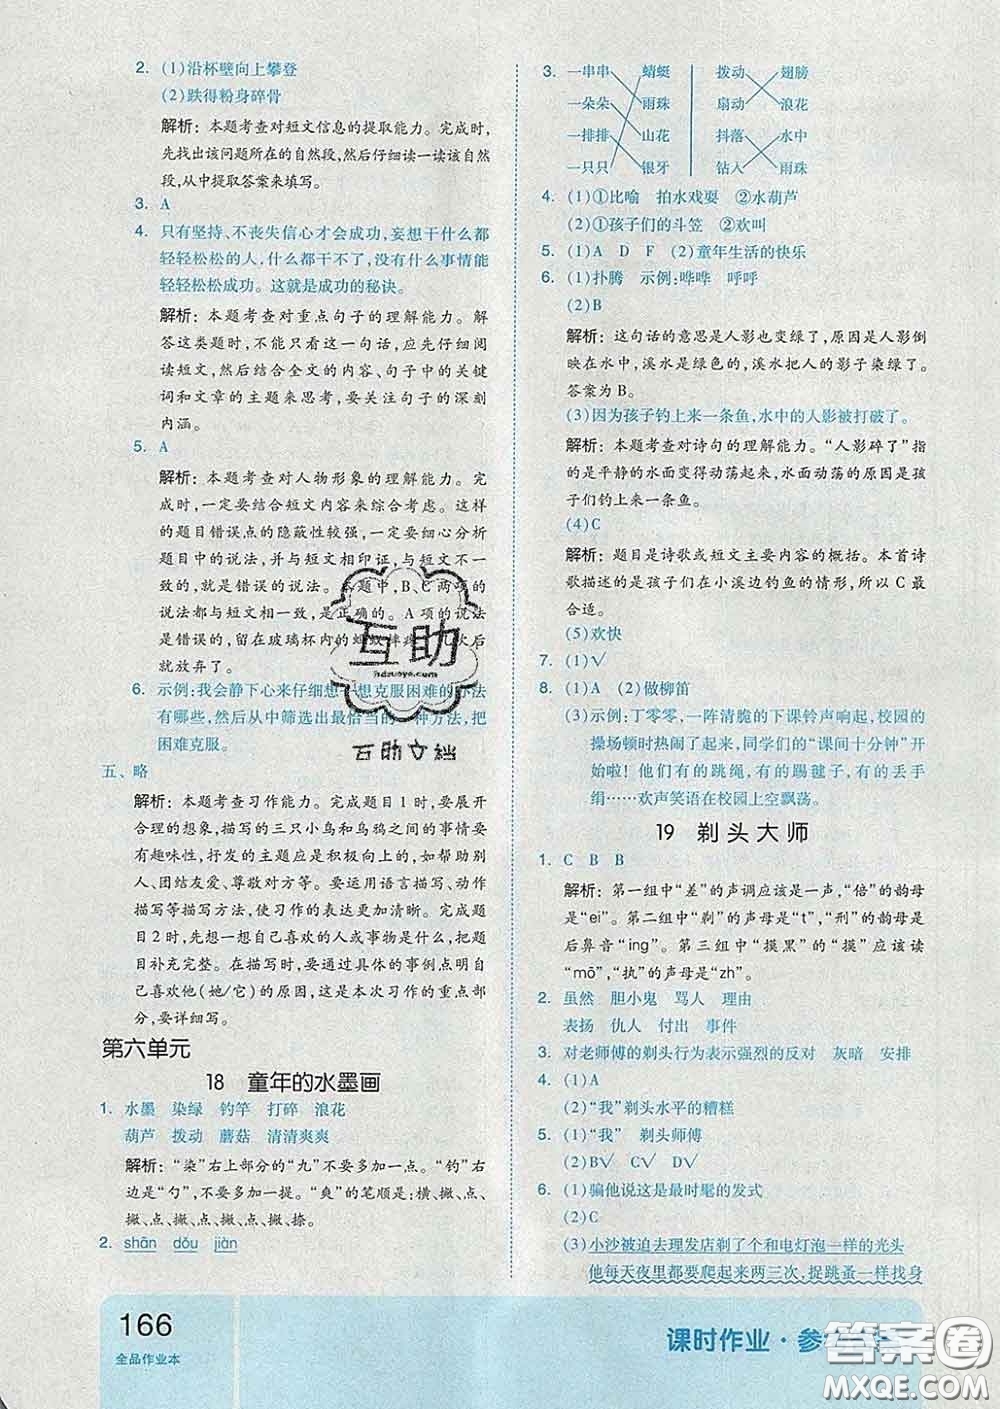 2. (1)沿杯壁向上攀登
(2)跌得粉身碎骨
解析：本题考查对短文信息的提取能力。完成时，
先找出该问题所在的自然段，然后仔细读一读该自然
段，从中提取答案来填写。
3. A
4. 只有坚持、不丧失信心才会成功，妄想干什么都
轻轻松松的人，什么都干不了，没有什么事情能
轻轻松松成功。这就是成功的秘诀。
解析：本题考查对重点句子的理解能力。解
答这类题时，不能只看这一句话，应先仔细阅
读短文，然后结合全文的内容、句子中的关键
词和文章的主题来思考，要关注句子的深刻
内涵。
5. A
解析：本题考查对人物形象的理解能力。完
成时，一定要结合短文内容来综合考虑。这样的
的题目错误点的隐蔽性较强，一定要细心分析
题目中的说法，并与短文相印证，与短文不一
致的，就是错误的说法。本题中，B、C两项的
说法都与短文相一致，是正确的。A项的说法
是错误的，留在玻璃杯内的蝈蝈摔疼几次后
就放弃了。
6. 示例：我会静下心来仔细想一想克服困难的办法
有哪些，然后从中筛选出最恰当的一种方法，把
困难克服。
五、略
解析：本题考查习作能力。完成题目1时，要展开
合理的想象，描写的三只小鸟和乌鸦之间的事情要
有趣味性，抒发的主题应是积极向上的，如帮助别
人、团结友爱、尊敬对方等。要运用语言描写、动作
描写等描写方法，使习作的表达更加清晰。完成题
目2时，先想一想自己喜欢的人或事物是什么，把
题目补充完整。在描写时，要通过具体的事例点明自
己喜欢他(她/它)的原因，这是本次习作的重点部
分，要详细写。
第六单元
18 童年的水墨画
1. 水墨 染绿 钓竿 打碎 浪花
葫芦 拨动 蘑菇 清清爽爽
解析：“染”右上部分的“九”不要多加一点。“钓”右
边是“勺”，不要多加一提。“爽”的笔顺是：横、撇、点、
撇、点、撇、点、撇、点、撇、捺。
2. shān dǒu jiàn
3. 一串串 蜻蜓 拨动 翅膀
一朵朵 雨珠 扇动 浪花
一排排 山花 抖落 水中
一只只 银牙 钻入 雨珠
4. (1)①比喻 拍水戏耍 ②水葫芦
(2)①孩子们的斗笠 ②欢叫
5. (1)A D F (2)童年生活的快乐
6. (1)扑腾 示例：哗哗 呼呼
(2)B
解析：这句话的意思是人影也变绿了，原因是人影倒
映在水中，溪水是绿色的，溪水把人的影子染绿了。
答案为B。
(3)因为孩子钓上来一条鱼，水中的人影被打破了。
解析：本题考查对诗句的理解能力。“人影碎了”指
的是平静的水面变得动荡起来，水面动荡的原因是孩
子们钓上来一条鱼。
(4)C
解析：题目是诗歌或短文主要内容的概括。本首诗
歌描述的是孩子们在小溪边钓鱼的情形，所以C最
合适。
(5)欢快
7. (1)√
8. (1)A (2)做柳笛
(3)示例：丁零零，一阵清脆的下课铃声响起，校园的
操场顿时热闹了起来，同学们的“课间十分钟”开
始啦！他们有的跳绳，有的踢毽子，有的丢手
绢……欢声笑语在校园上空飘荡。
19 剃头大师
1. C B B
解析：第一组中“差”的声调应该是一声，“倍”的韵母
是“ei”。第二组中“剃”的声母是“t”，“刑”的韵母是
后鼻音“ing”。第三组中“摸黑”的“摸”应该读
“mō”，“执”的声母是“zh”。
2. 虽然 胆小鬼 骂人 理由
表扬 仇人 付出 事件
3. 对老师傅的剃头行为表示强烈的反对 灰暗 安排
4. (1)A
(2)“我”剃头水平的糟糕
5. (1)“我” 剃头师傅
(2)B√ C√ D√
6. (1)骗他说这是最时髦的发式
(2)C
(3)小沙被迫去理发店剃了个和电灯泡一样的光头
他每天夜里都要爬起来两三次，捉跳蚤一样找身
166
全品作业本
课时作业·参考答案
互助
hdzuoye.com
互助文档
答案圈
MXQE.COM